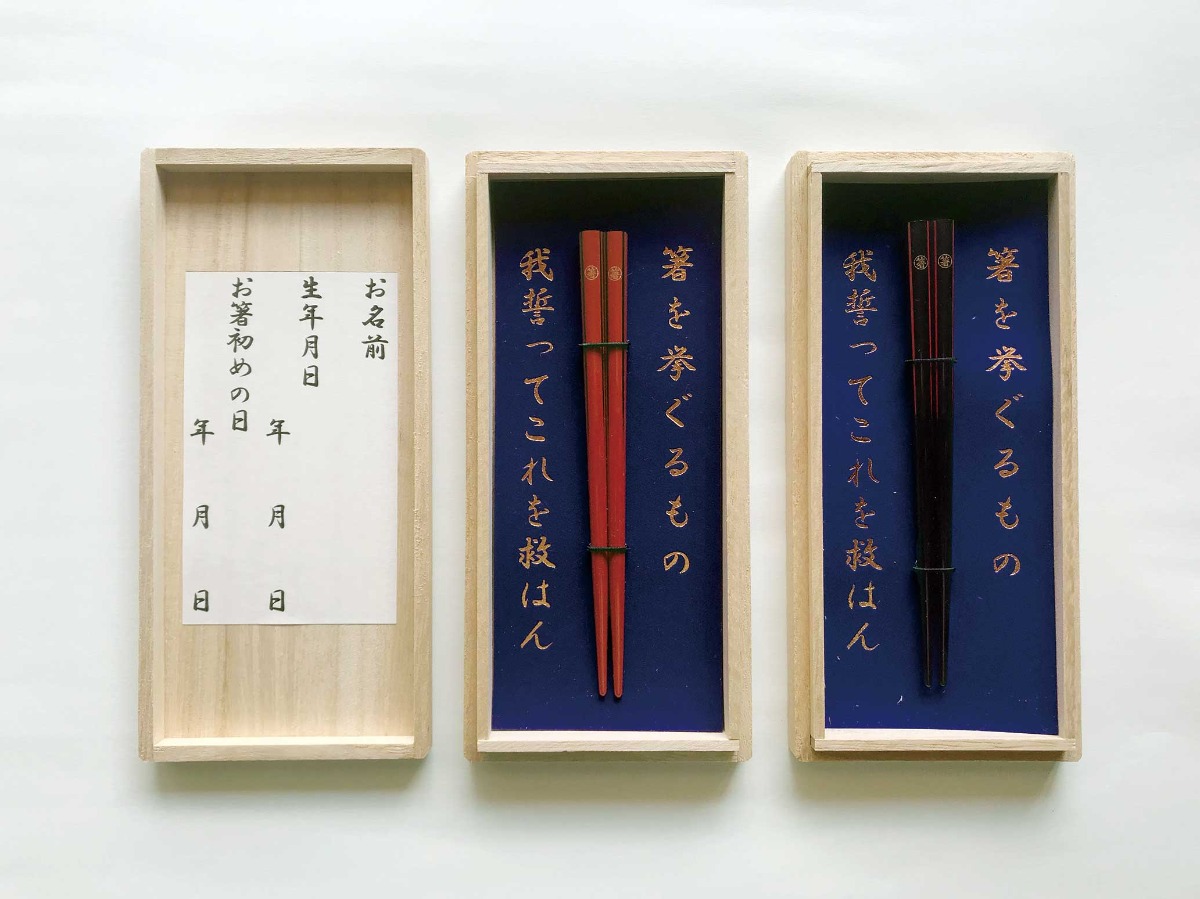 お名前
生年月日
年 月 日
お箸初めの日
年 月 日
箸を挙ぐるもの
我誓ってこれを救はん
箸
箸
箸を挙ぐるもの
我誓ってこれを救はん
箸
箸